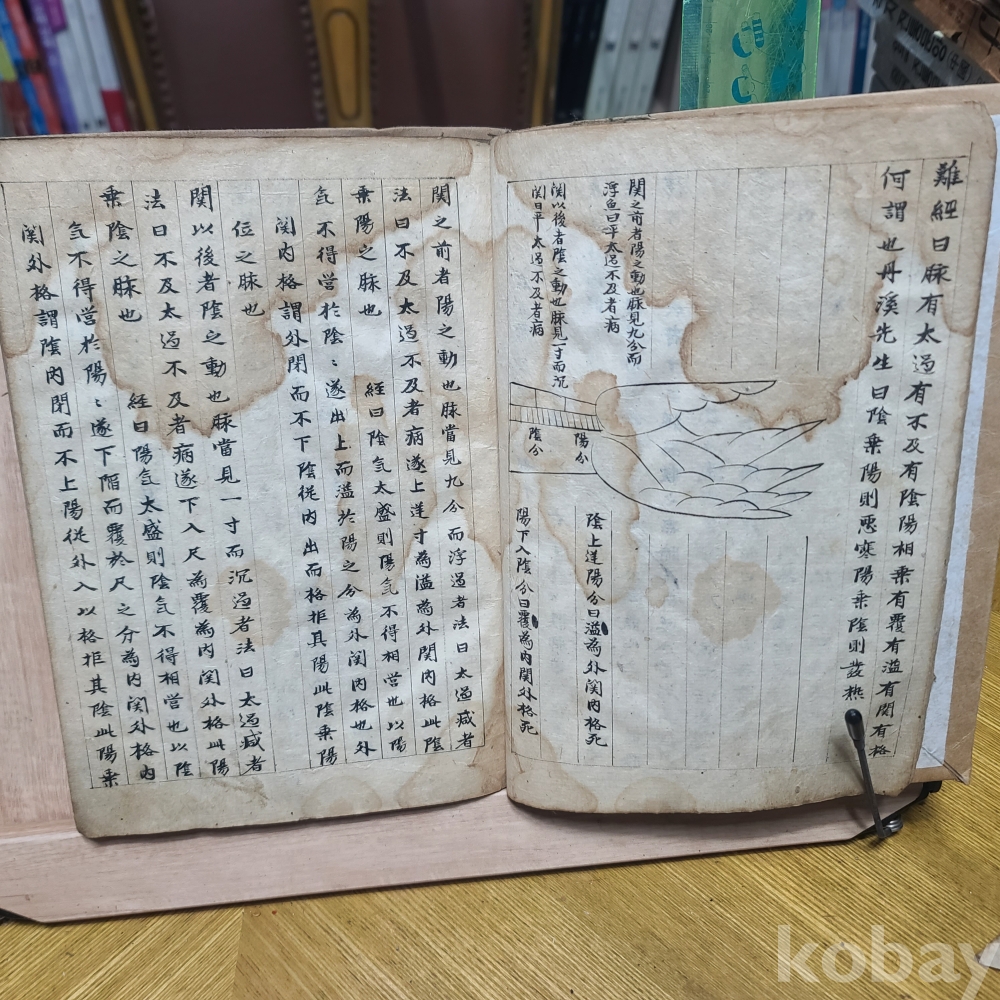 難經曰脉有太過有不及有陰陽相乘有覆有溢有関有格
何謂也丹溪先生曰陰乘陽則惡寒陽乘陰則發熱
関之前者陽之動也脉見九分而
浮魚曰平太過不及者病
関以後者陰之動也脉見一寸而沉
関曰平太過不及者病
陽分
陰分
陰上逹陽分曰溢為外関内格死
陽下入陰分曰覆為内関外格死
関之前者陽之動也脉當見九分而浮過者法曰太過减者
法曰不及太過不及者病遂上逹寸為溢為外関内格此陰
乘陽之脉也 經曰陰氣太盛則陽氣不得相営也以陽
氣不得営於陰〻遂出上而溢於陽之分為外関内格也外
関内格謂外閉而不下陰從内出而格拒其陽此陰乘陽
位之脉也
関以後者陰之動也脉當見一寸而沉過者法曰太過减者
法曰不及太過不及者病遂下入尺為覆為内関外格此陽
乘陰之脉也 經曰陽氣太盛則陰氣不得相営也以陰
氣不得営於陽〻遂下陷而覆於尺之分為内関外格内
関外格謂陰内閉而不上陽從外入以格拒其陰此陽乘
kobay